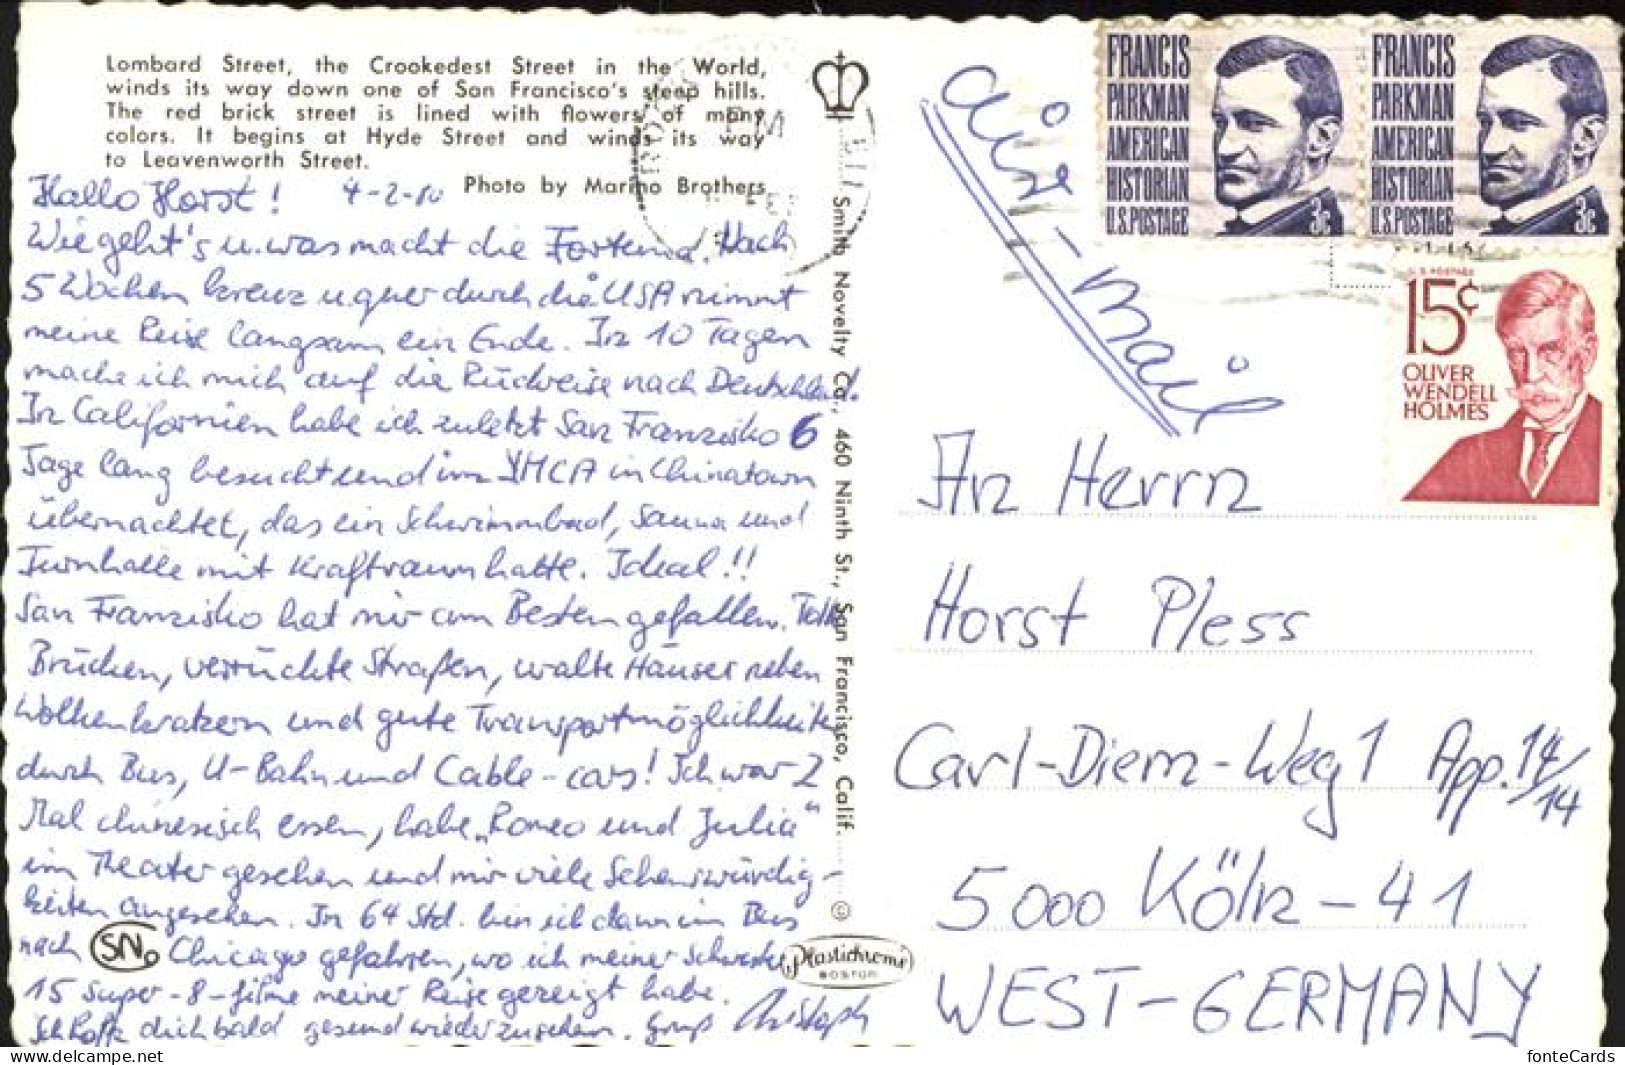 Lombard Street, the Crookedest Street in the World,
winds its way down one of San Francisco's steep hills.
The red brick street is lined with flowers of many
colors. It begins at Hyde Street and winds its way
to Leavenworth Street.
Photo by Marino Brothers
Hallo Horst! 4-2-80
Wie geht's u. was macht die Nach
5 Wochen kreuz u. quer durch die USA nimmt
meine Reise langsam ein Ende. In 10 Tagen
mache ich mich auf die Rückreise nach Deutschland.
In Californien habe ich zuletzt San Franzisko 6
Tage lang besucht und im YMCA in Chinatown
übernachtet, das ein Schwimmbad, Sauna und
Turnhalle mit Kraftraum hatte. Ideal!!
San Franzisko hat mir am Besten gefallen. Tolle
Brücken, verrückte Straßen, uralte Häuser neben
Wolkenkratzern und gute Transportmöglichkeiten
durch Bus, U-Bahn und Cable-cars! Ich war 2
Mal chinesisch essen, habe „Romeo und Julia“
im Theater gesehen und mir viele Sehenswürdig-
keiten angesehen. In 64 Std. bin ich dann im Bus
nach Chicago gefahren, wo ich meiner Schwester
15 Super-8-filme meiner Reise gezeigt habe.
Ich hoffe dich bald gesund wiederzusehen. Gruß Christoph
SN
Smith Novelty Co., 460 Ninth St., San Francisco, Calif.
©
Plastichrome
BOSTON
air-mail
FRANCIS
PARKMAN
AMERICAN
HISTORIAN
U.S. POSTAGE
3c
FRANCIS
PARKMAN
AMERICAN
HISTORIAN
U.S. POSTAGE
3c
U.S. POSTAGE
15¢
OLIVER
WENDELL
HOLMES
An Herrn
Horst Pless
Carl-Diem-Weg 1 App. 14/14
5000 Köln-41
WEST-GERMANY
delcampe.net
fonteCards